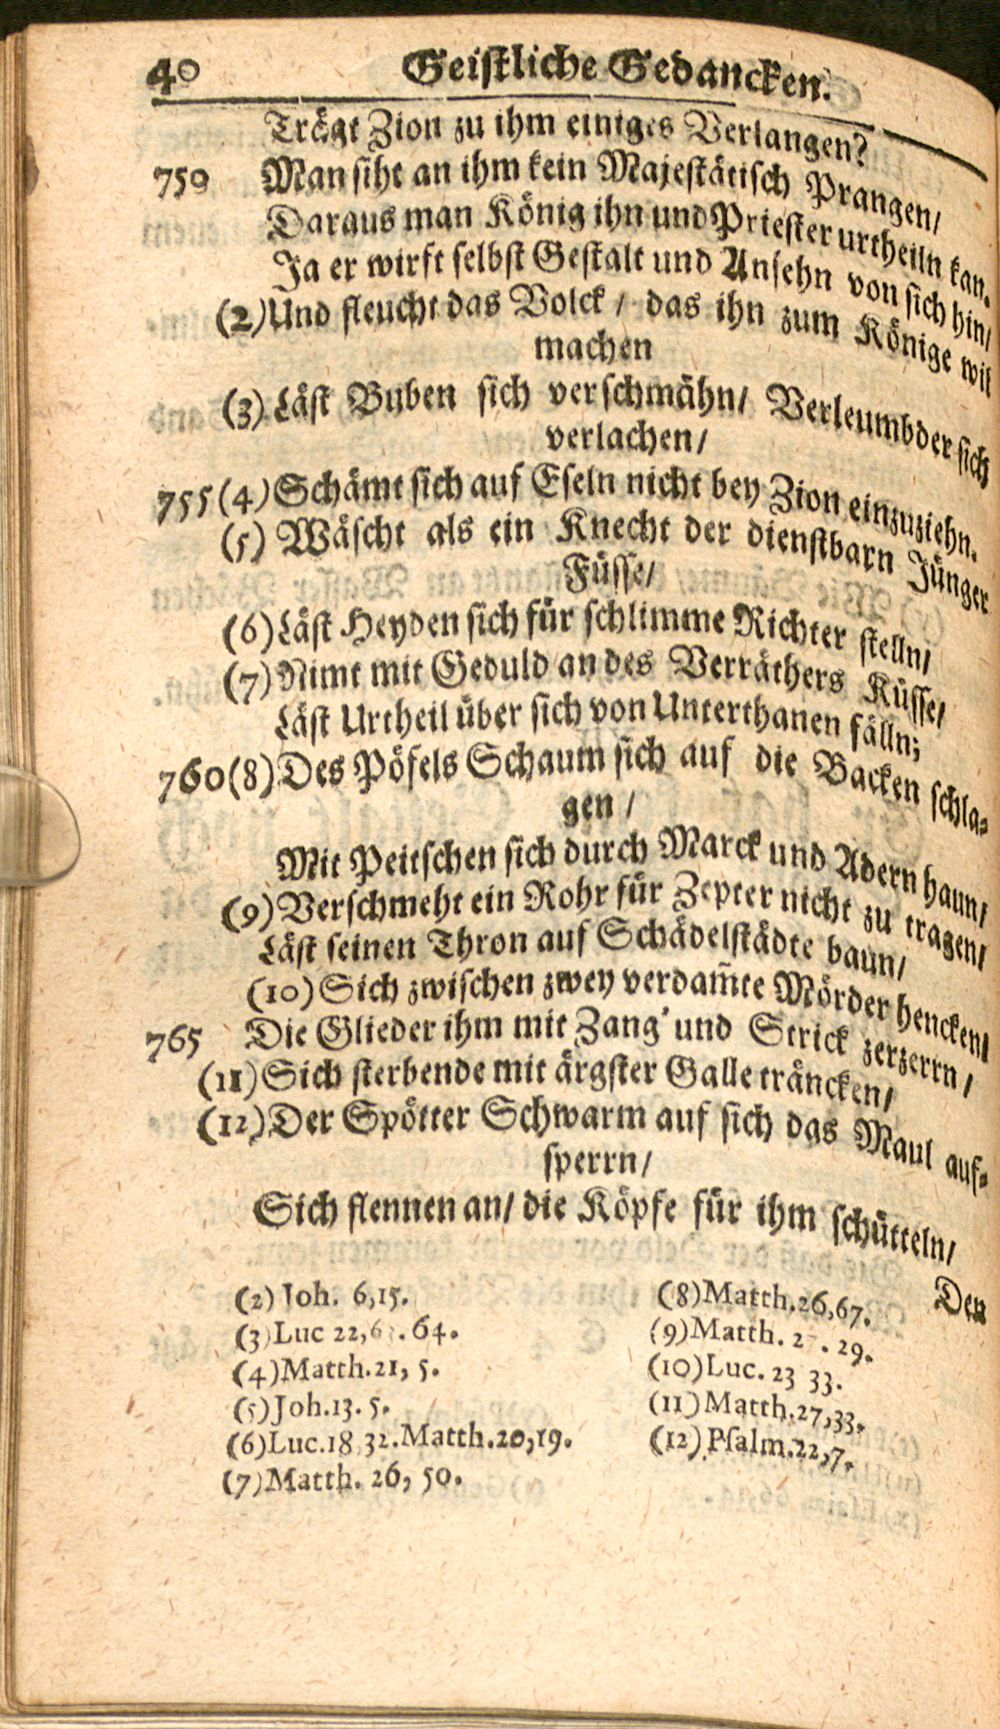 40 Geistliche Gedancken.
Trägt Zion zu ihm einiges Verlangen?
750 Man siht an ihm kein Majestätisch Prangen/
Daraus man König ihn und Priester urtheiln kan.
Ja er wirft selbst Gestalt und Ansehn von sich hin/
(2)Und fleucht das Volck / das ihn zum Könige wil
machen
(3) Läst Buben sich verschmähn/ Verleumbder sich
verlachen/
755 (4) Schämt sich auf Eseln nicht bey Zion einzuziehn.
(5) Wäscht als ein Knecht der dienstbarn Jünger
Füsse/
(6) Läst Heyden sich für schlimme Richter stelln/
(7) Nimt mit Geduld an des Verräthers Küsse/
Läst Urtheil über sich von Unterthanen fälln;
760 (8) Des Pöfels Schaum sich auf die Backen schla-
gen /
Mit Peitschen sich durch Marck und Adern haun/
(9) Verschmeht ein Rohr für Zepter nicht zu tragen/
Läst seinen Thron auf Schädelstädte baun/
(10) Sich zwischen zwey verdam̃te Mörder hencken/
765 Die Glieder ihm mit Zang' und Strick zerzerrn /
(11) Sich sterbende mit ärgster Galle träncken/
(12) Der Spötter Schwarm auf sich das Maul auf-
sperrn/
Sich flennen an/ die Köpfe für ihm schütteln/
Den
(2) Joh. 6,15.
(3) Luc 22, . 64.
(4) Matth. 21, 5.
(5) Joh. 13. 5.
(6) Luc. 18 32. Matth. 20, 19.
(7) Matth. 26, 50.
(8) Matth. 26, 67.
(9) Matth. . 29.
(10) Luc. 23 33.
(11) Matth. 27, 33.
(12) Psalm. 22, 7.